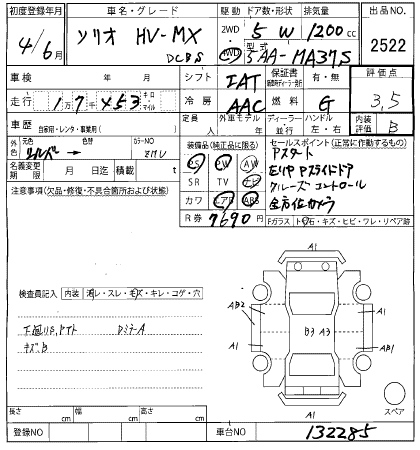 初度登録年月 車名・グレード 駆動 ドア数・形状 排気量 出品NO.
4/6月 ソリオ HV-MX DCBS 2WD 4WD 5W 1200cc 2522
型式 5AA-MA37S
車検 年 月 シフト IAT 保証書 有・無 評価点
走行 1万7千453 キロ マイル 冷房 AAC 燃料 G 3.5
車歴 自家用・レンタ・事業用( ) 定員 人 外車モデル 年 ディーラー 並行 ハンドル 左・右 内装評価 B
外色 元色 シルバー → 色替 カラーNO ZMU
装備品(純正品に限る) セールスポイント(正常に作動するもの)
名義変更期限 月 日迄 積載 t
PS PW AW Pスタート
SR TV ナビ 左右Pスライドドア
カワ エアB ABS クルーズコントロール
全方位カメラ
注意事項(欠品・修復・不具合箇所および状態)
R券 7690 円
Fガラス トビ石・キズ・ヒビ・ワレ・リペア跡
A1
検査員記入 内装 汚レ・スレ・キズ・キレ・コゲ・穴
AB2 A1
下廻りS,サビト DミラーA
キズ.B
B9 A3
A1 AB1
A1
スペア
長さ cm 幅 cm 高さ cm
登録NO 車台NO 132285